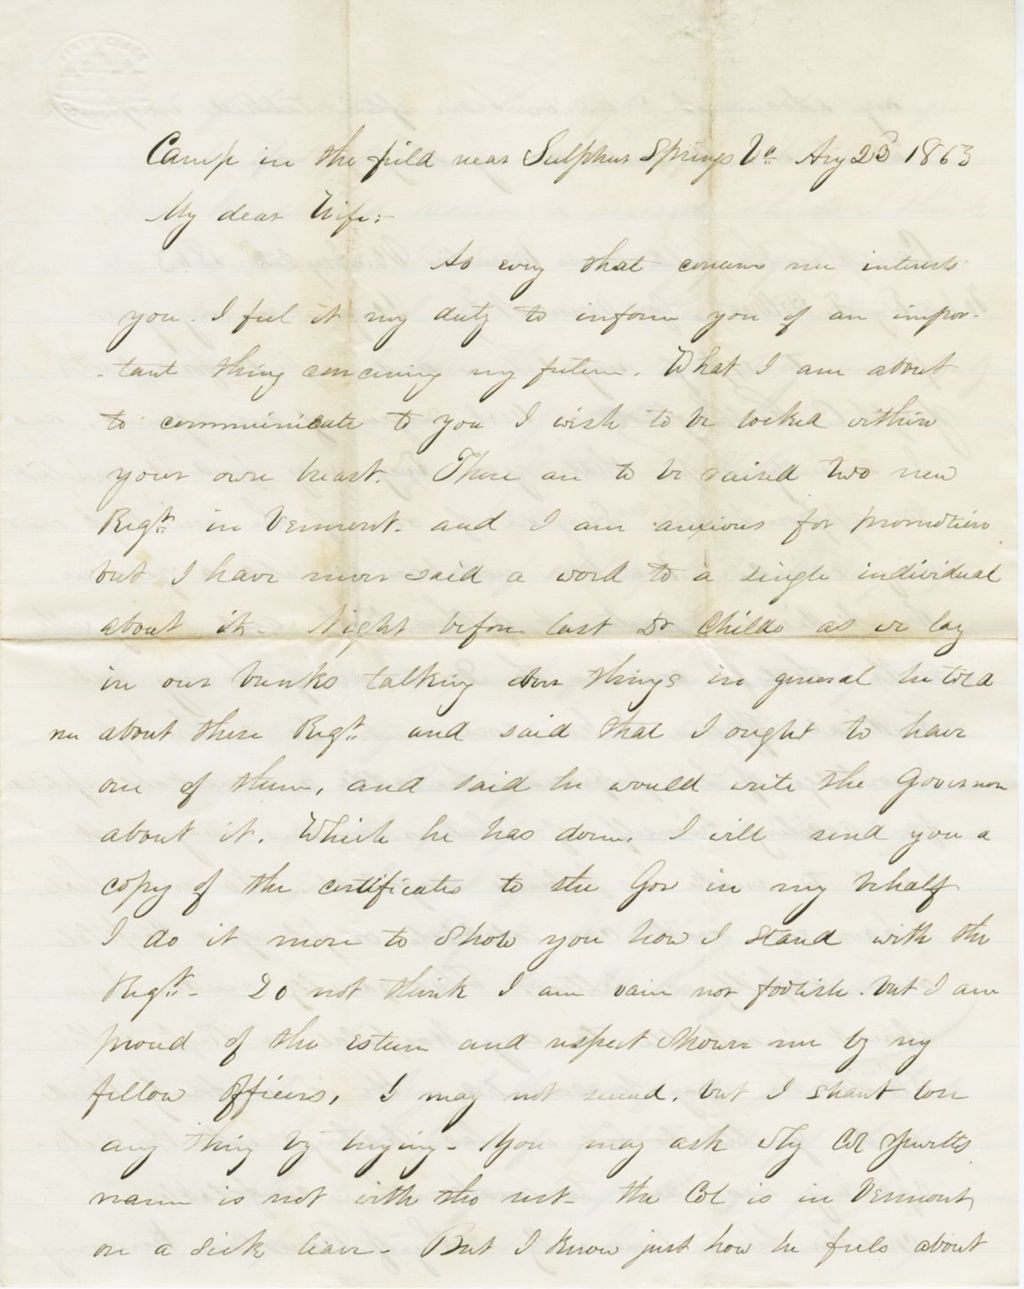 Camp in the field near Sulphur Springs Va Aug 23d 1863
My dear Wife:-
As evry that concerns me interests
you. I feel it my duty to inform you of an impor-
-tant thing concerning my future. What I am about
to communicate to you I wish to be locked within
your own breast. There are to be raised two new
Regts. in Vermont. and I am anxious for promotion
but I have never said a word to a single individual
about it- Night before last Dr Childe as we lay
in our bunks talking over things in general he told
me about these Regts. and said that I ought to have
one of them, and said he would write the Governor
about it. Which he has done. I will send you a
copy of the certificates to the Gov in my behalf
I do it more to show you how I stand with the
Regt.- Do not think I am vain nor foolish. but I am
proud of the esteem and respect shown me by my
fellow officers, I may not succeed. but I shant lose
any thing by trying- You may ask why Col
name is not with the rest- the Col is in Vermont,
on a sick leave- But I know just how he feels about